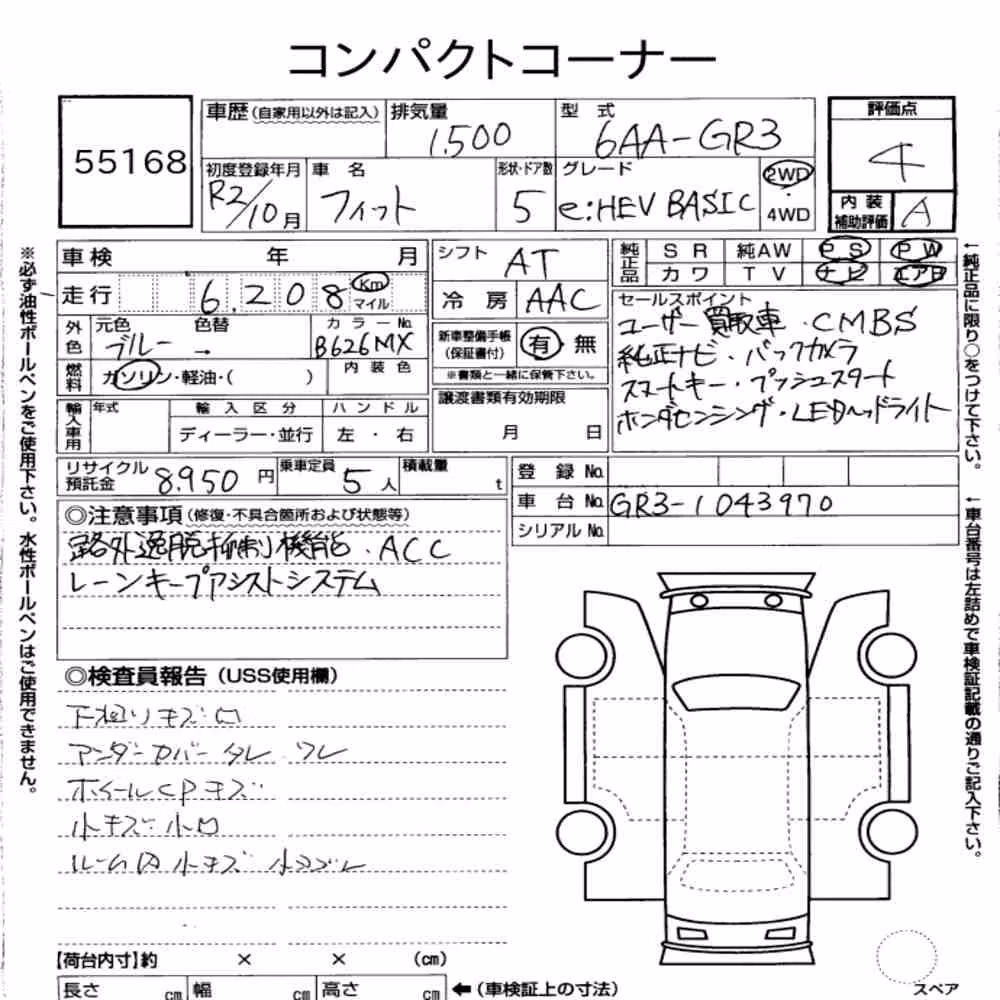 コンパクトコーナー
55168
車歴 (自家用以外は記入)
排気量 1.500
型式 6AA-GR3
評価点 4
初度登録年月 R2/10月
車名 フィット
形状・ドア数 5
グレード e:HEV BASIC
2WD・4WD
内装補助評価 A
車検 年 月
走行 6.208 Km マイル
シフト AT
冷房 AAC
純正品 SR 純AW PS PW
カワ TV ナビ エアB
外色 元色 ブルー → 色替
カラーNo. B626MX
燃料 ガソリン・軽油・( )
内装色
新車整備手帳 (保証書付) 有・無
※書類と一緒に保管下さい。
セールスポイント
ユーザー買取車・CMBS
純正ナビ・バックカメラ
スマートキー・プッシュスタート
ホンダセンシング・LEDヘッドライト
輸入車用 年式
輸入区分 ディーラー・並行
ハンドル 左・右
譲渡書類有効期限 月 日
リサイクル預託金 8.950円
乗車定員 5人
積載量 t
登録No.
車台No. GR3-1043970
シリアルNo.
◎注意事項 (修復・不具合箇所および状態等)
路外逸脱抑制機能・ACC
レーンキープアシストシステム
◎検査員報告 (USS使用欄)
下廻リキズ凹
アンダーカバータレ ワレ
ホイールCPキズ
小キズ 小凹
ルーム内小キズ
【荷台内寸】約 × × (cm)
長さ cm 幅 cm 高さ cm ←(車検証上の寸法)
スペア
※必ず油性ボールペンをご使用下さい。水性ボールペンはご使用できません。
←純正品に限り○をつけて下さい。
←車台番号は左詰めで車検証記載の通りご記入下さい。